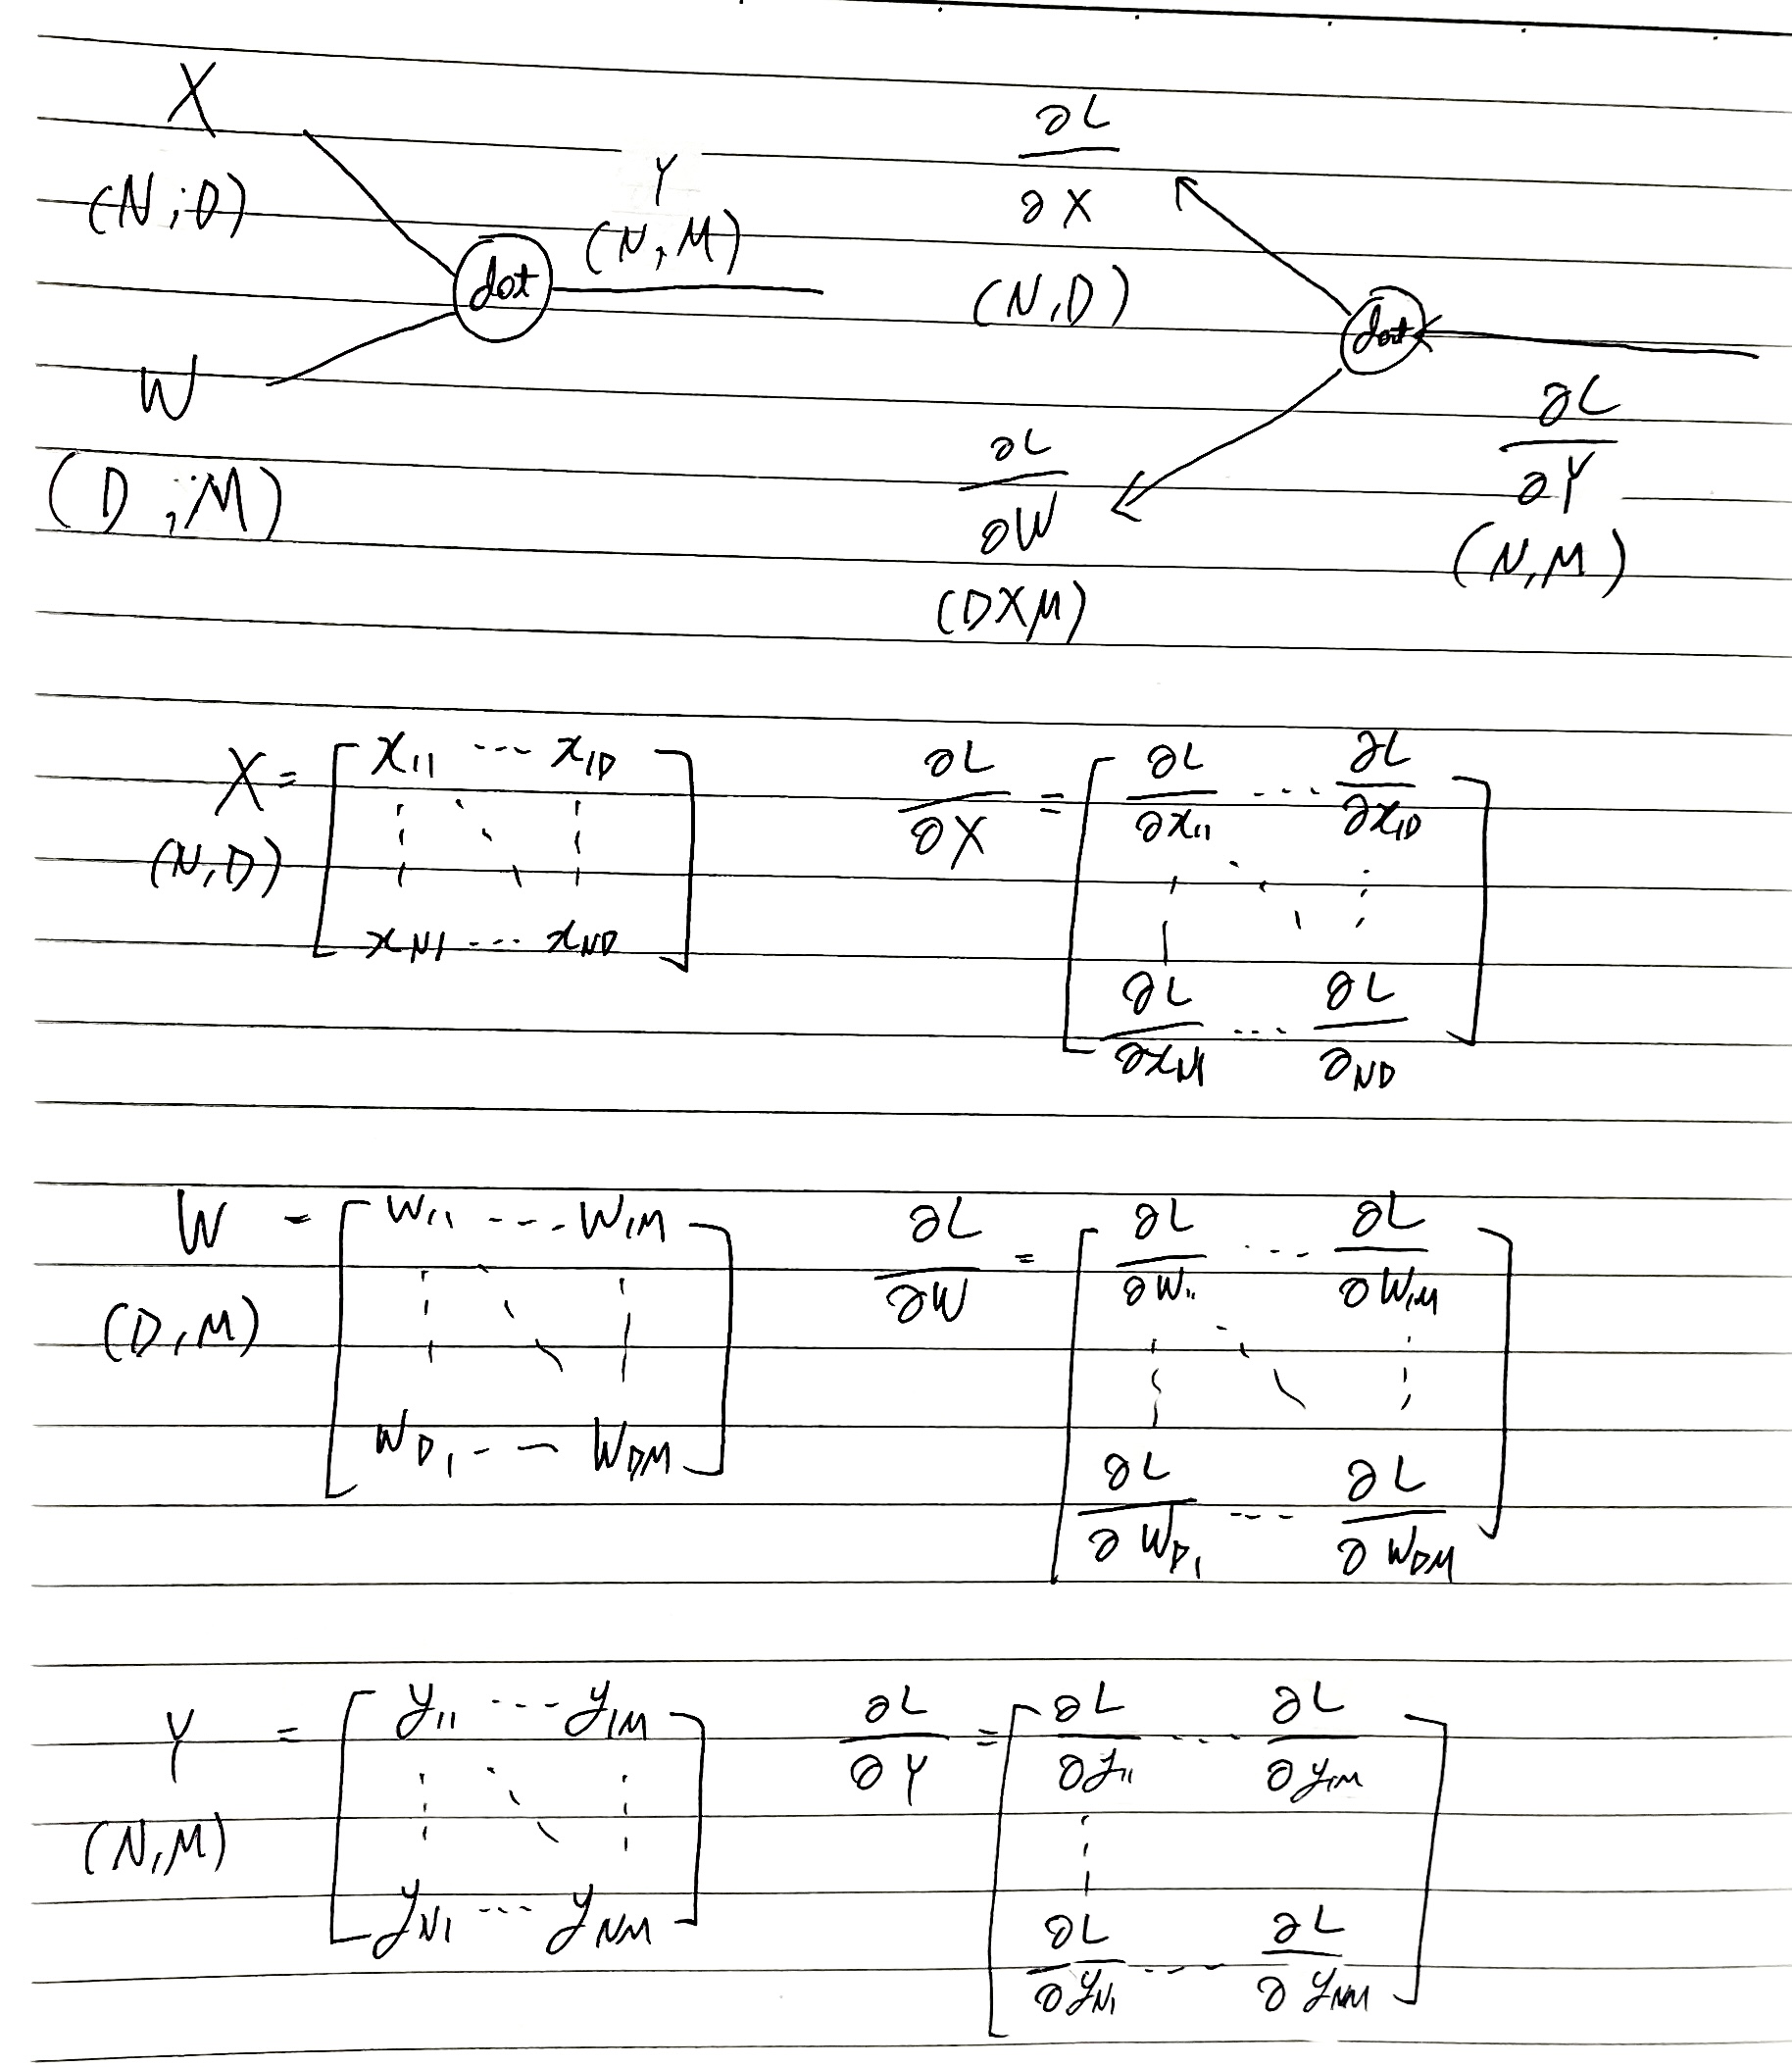 X
(N,D)
Y
(N,M)
dot
W
(D,M)
∂L
∂X
(N,D)
dot
∂L
∂W
(D×M)
∂L
∂Y
(N,M)
X = [ x₁₁ ··· x₁D
(N,D)
xN1 ··· xND ]
∂L/∂X = [ ∂L/∂x₁₁ ··· ∂L/∂x₁D
∂L/∂xN1 ··· ∂L/∂ND ]
W = [ W₁₁ ··· W₁M
(D,M)
WD1 ··· WDM ]
∂L/∂W = [ ∂L/∂W₁₁ ··· ∂L/∂W₁M
∂L/∂WD1 ··· ∂L/∂WDM ]
Y = [ y₁₁ ··· y₁M
(N,M)
yN1 ··· yNM ]
∂L/∂Y = [ ∂L/∂y₁₁ ··· ∂L/∂y₁M
∂L/∂yN1 ··· ∂L/∂yNM ]